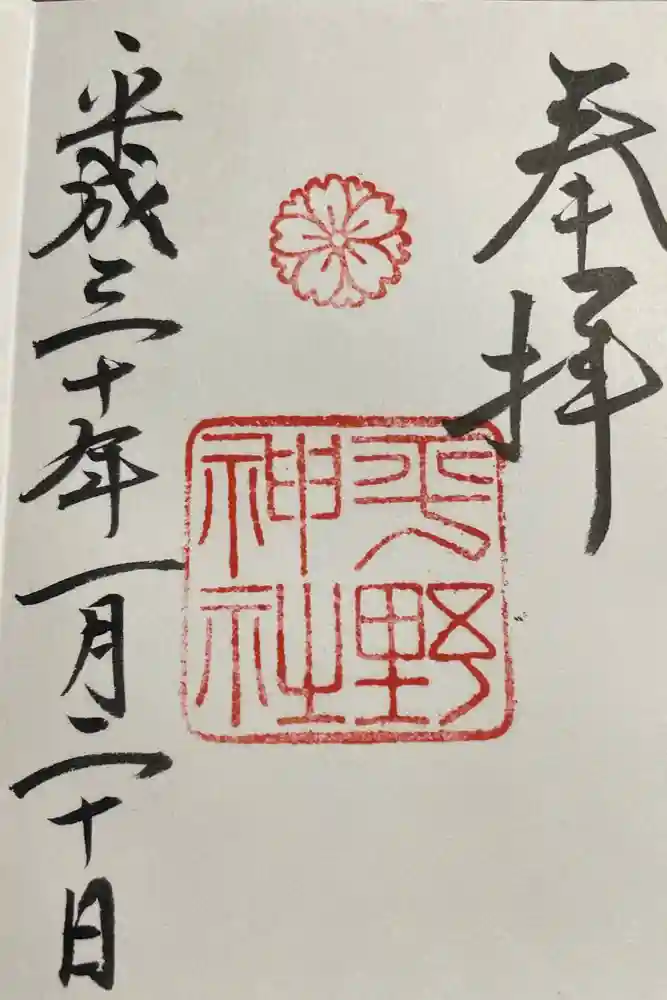 奉拝
平野
神社
平成三十年一月二十日